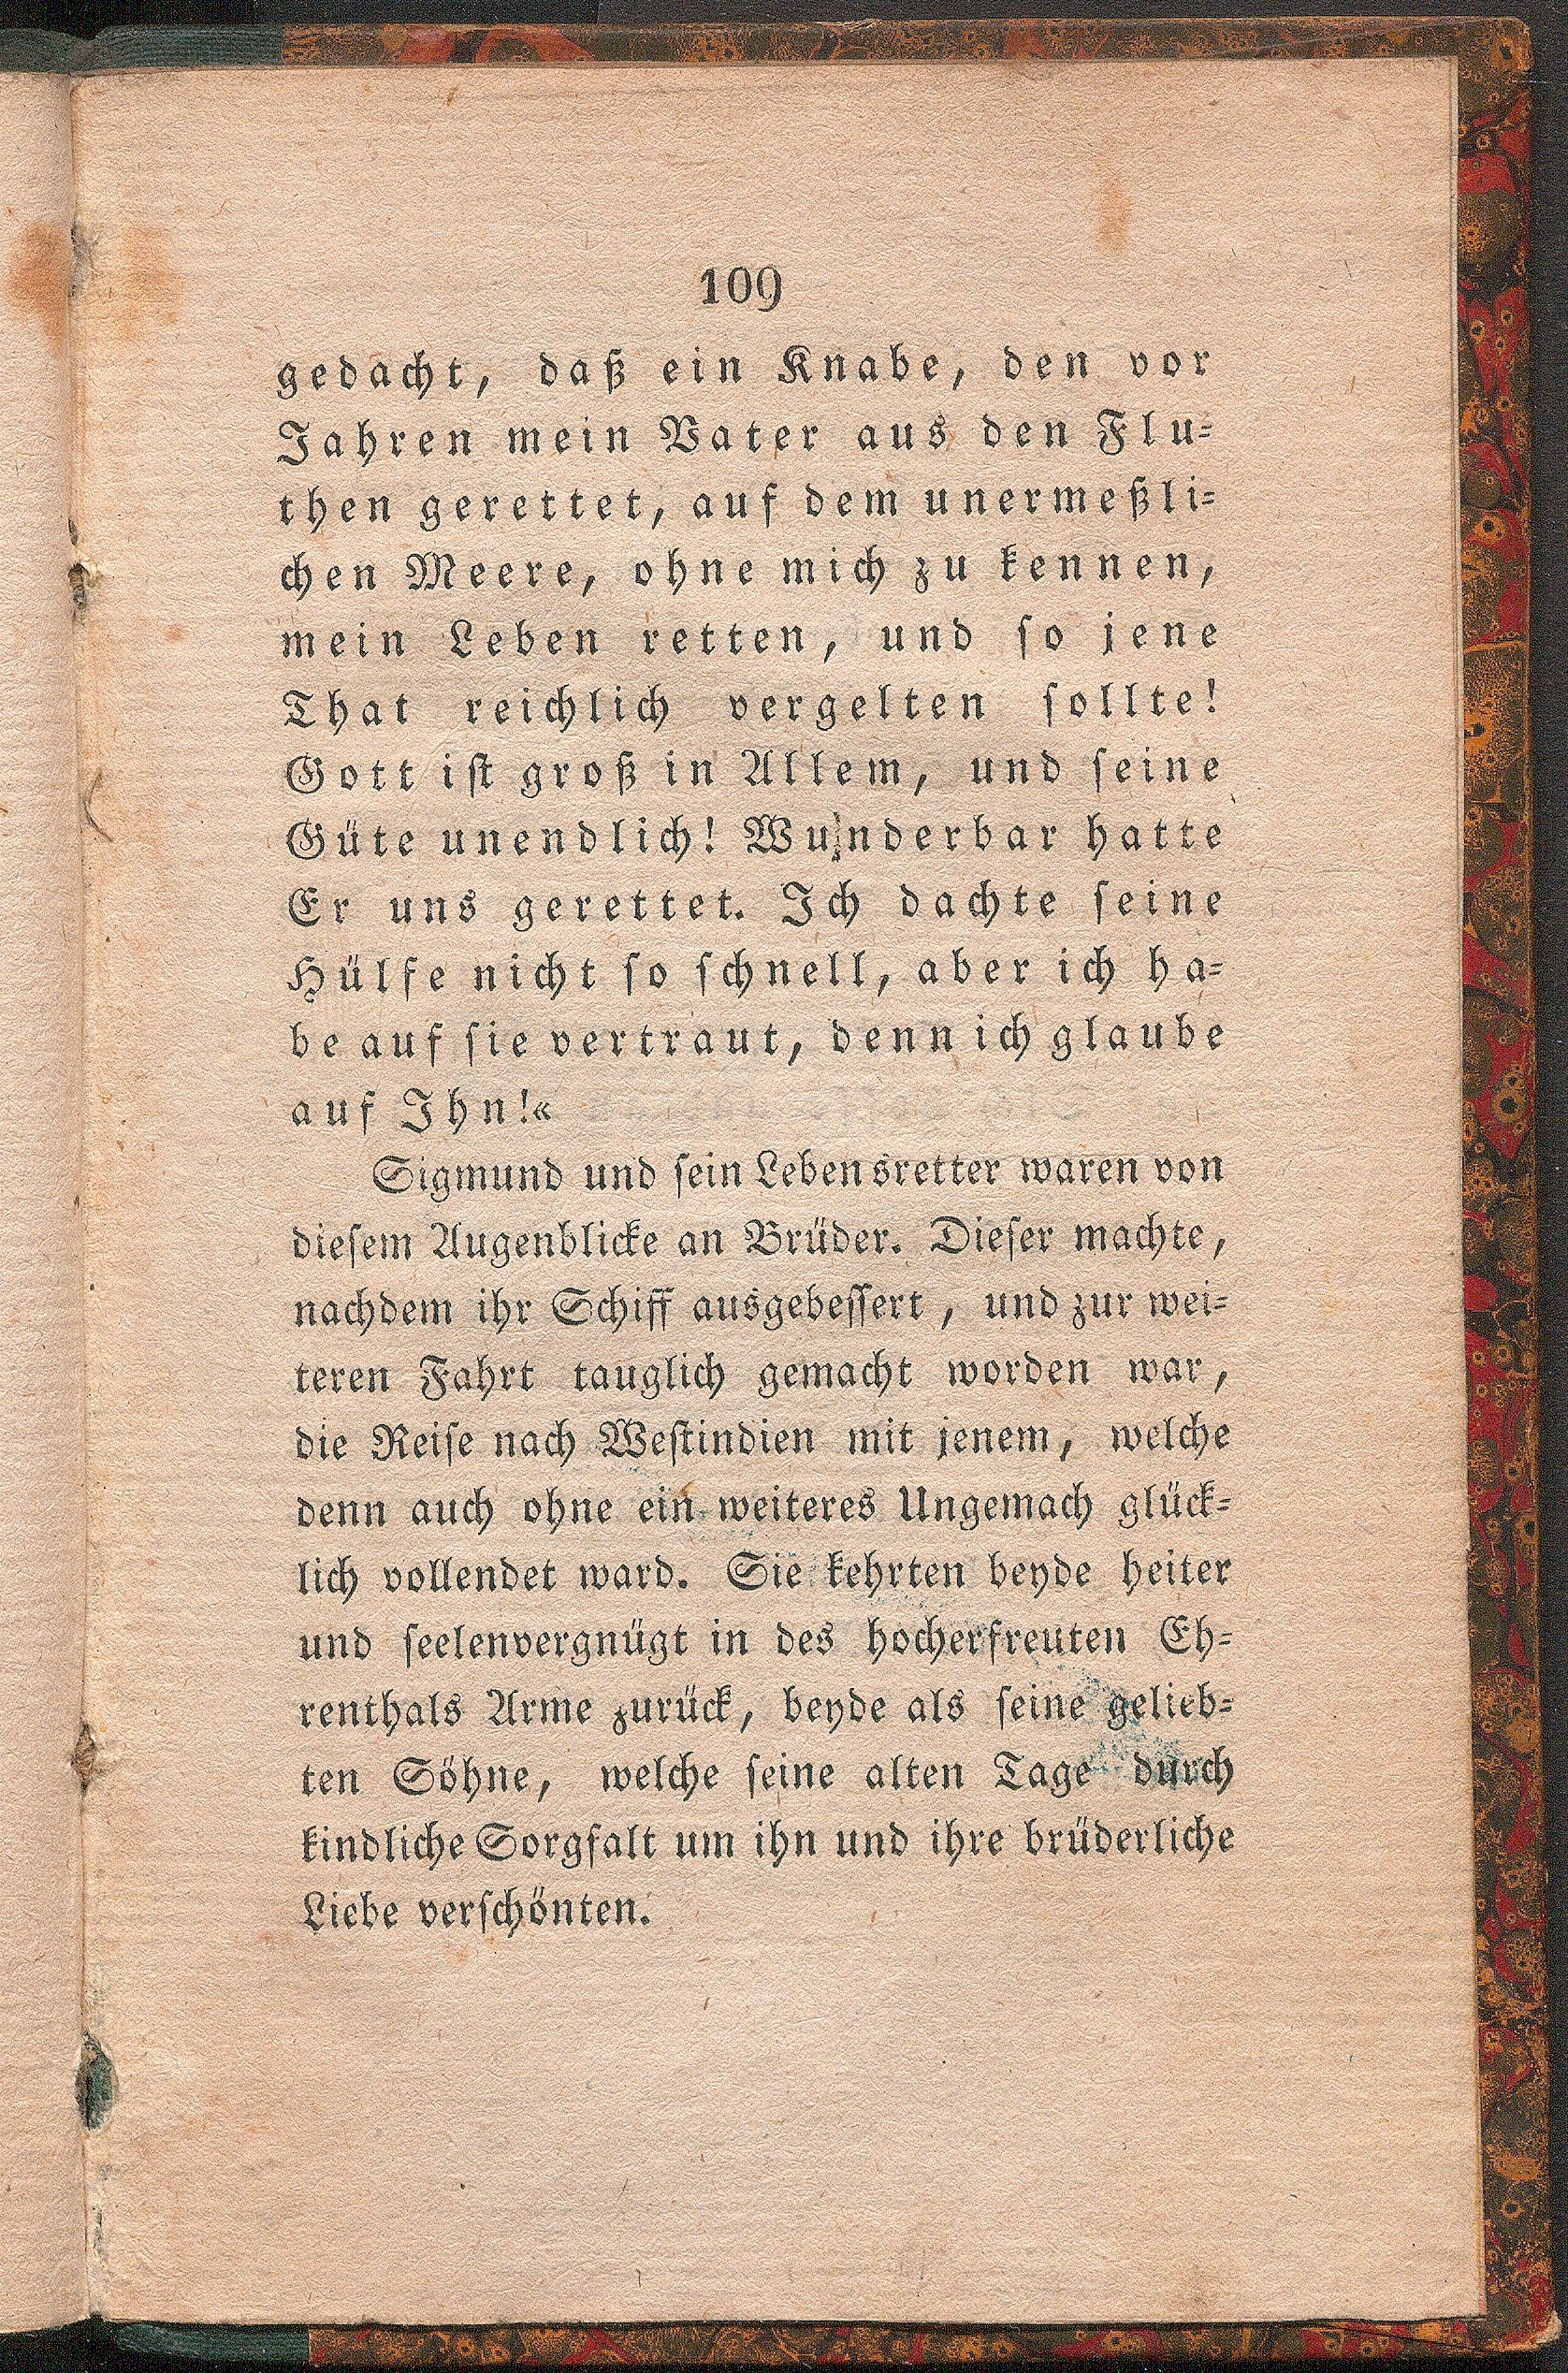 109
gedacht, daß ein Knabe, den vor
Jahren mein Vater aus den Flu-
then gerettet, auf dem unermeßli-
chen Meere, ohne mich zu kennen,
mein Leben retten, und so jene
That reichlich vergelten sollte!
Gott ist groß in Allem, und seine
Güte unendlich! Wunderbar hatte
Er uns gerettet. Ich dachte seine
Hülfe nicht so schnell, aber ich ha-
be auf sie vertraut, denn ich glaube
auf Ihn!«
Sigmund und sein Lebensretter waren von
diesem Augenblicke an Brüder. Dieser machte,
nachdem ihr Schiff ausgebessert, und zur wei-
teren Fahrt tauglich gemacht worden war,
die Reise nach Westindien mit jenem, welche
denn auch ohne ein weiteres Ungemach glück-
lich vollendet ward. Sie kehrten beyde heiter
und seelenvergnügt in des hocherfreuten Eh-
renthals Arme zurück, beyde als seine gelieb-
ten Söhne, welche seine alten Tage durch
kindliche Sorgfalt um ihn und ihre brüderliche
Liebe verschönten.